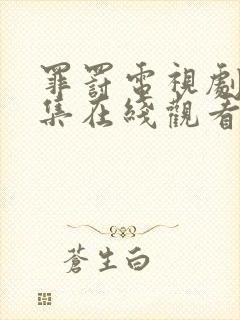 罪罰電視劇
集在綫觀看
蒼生白